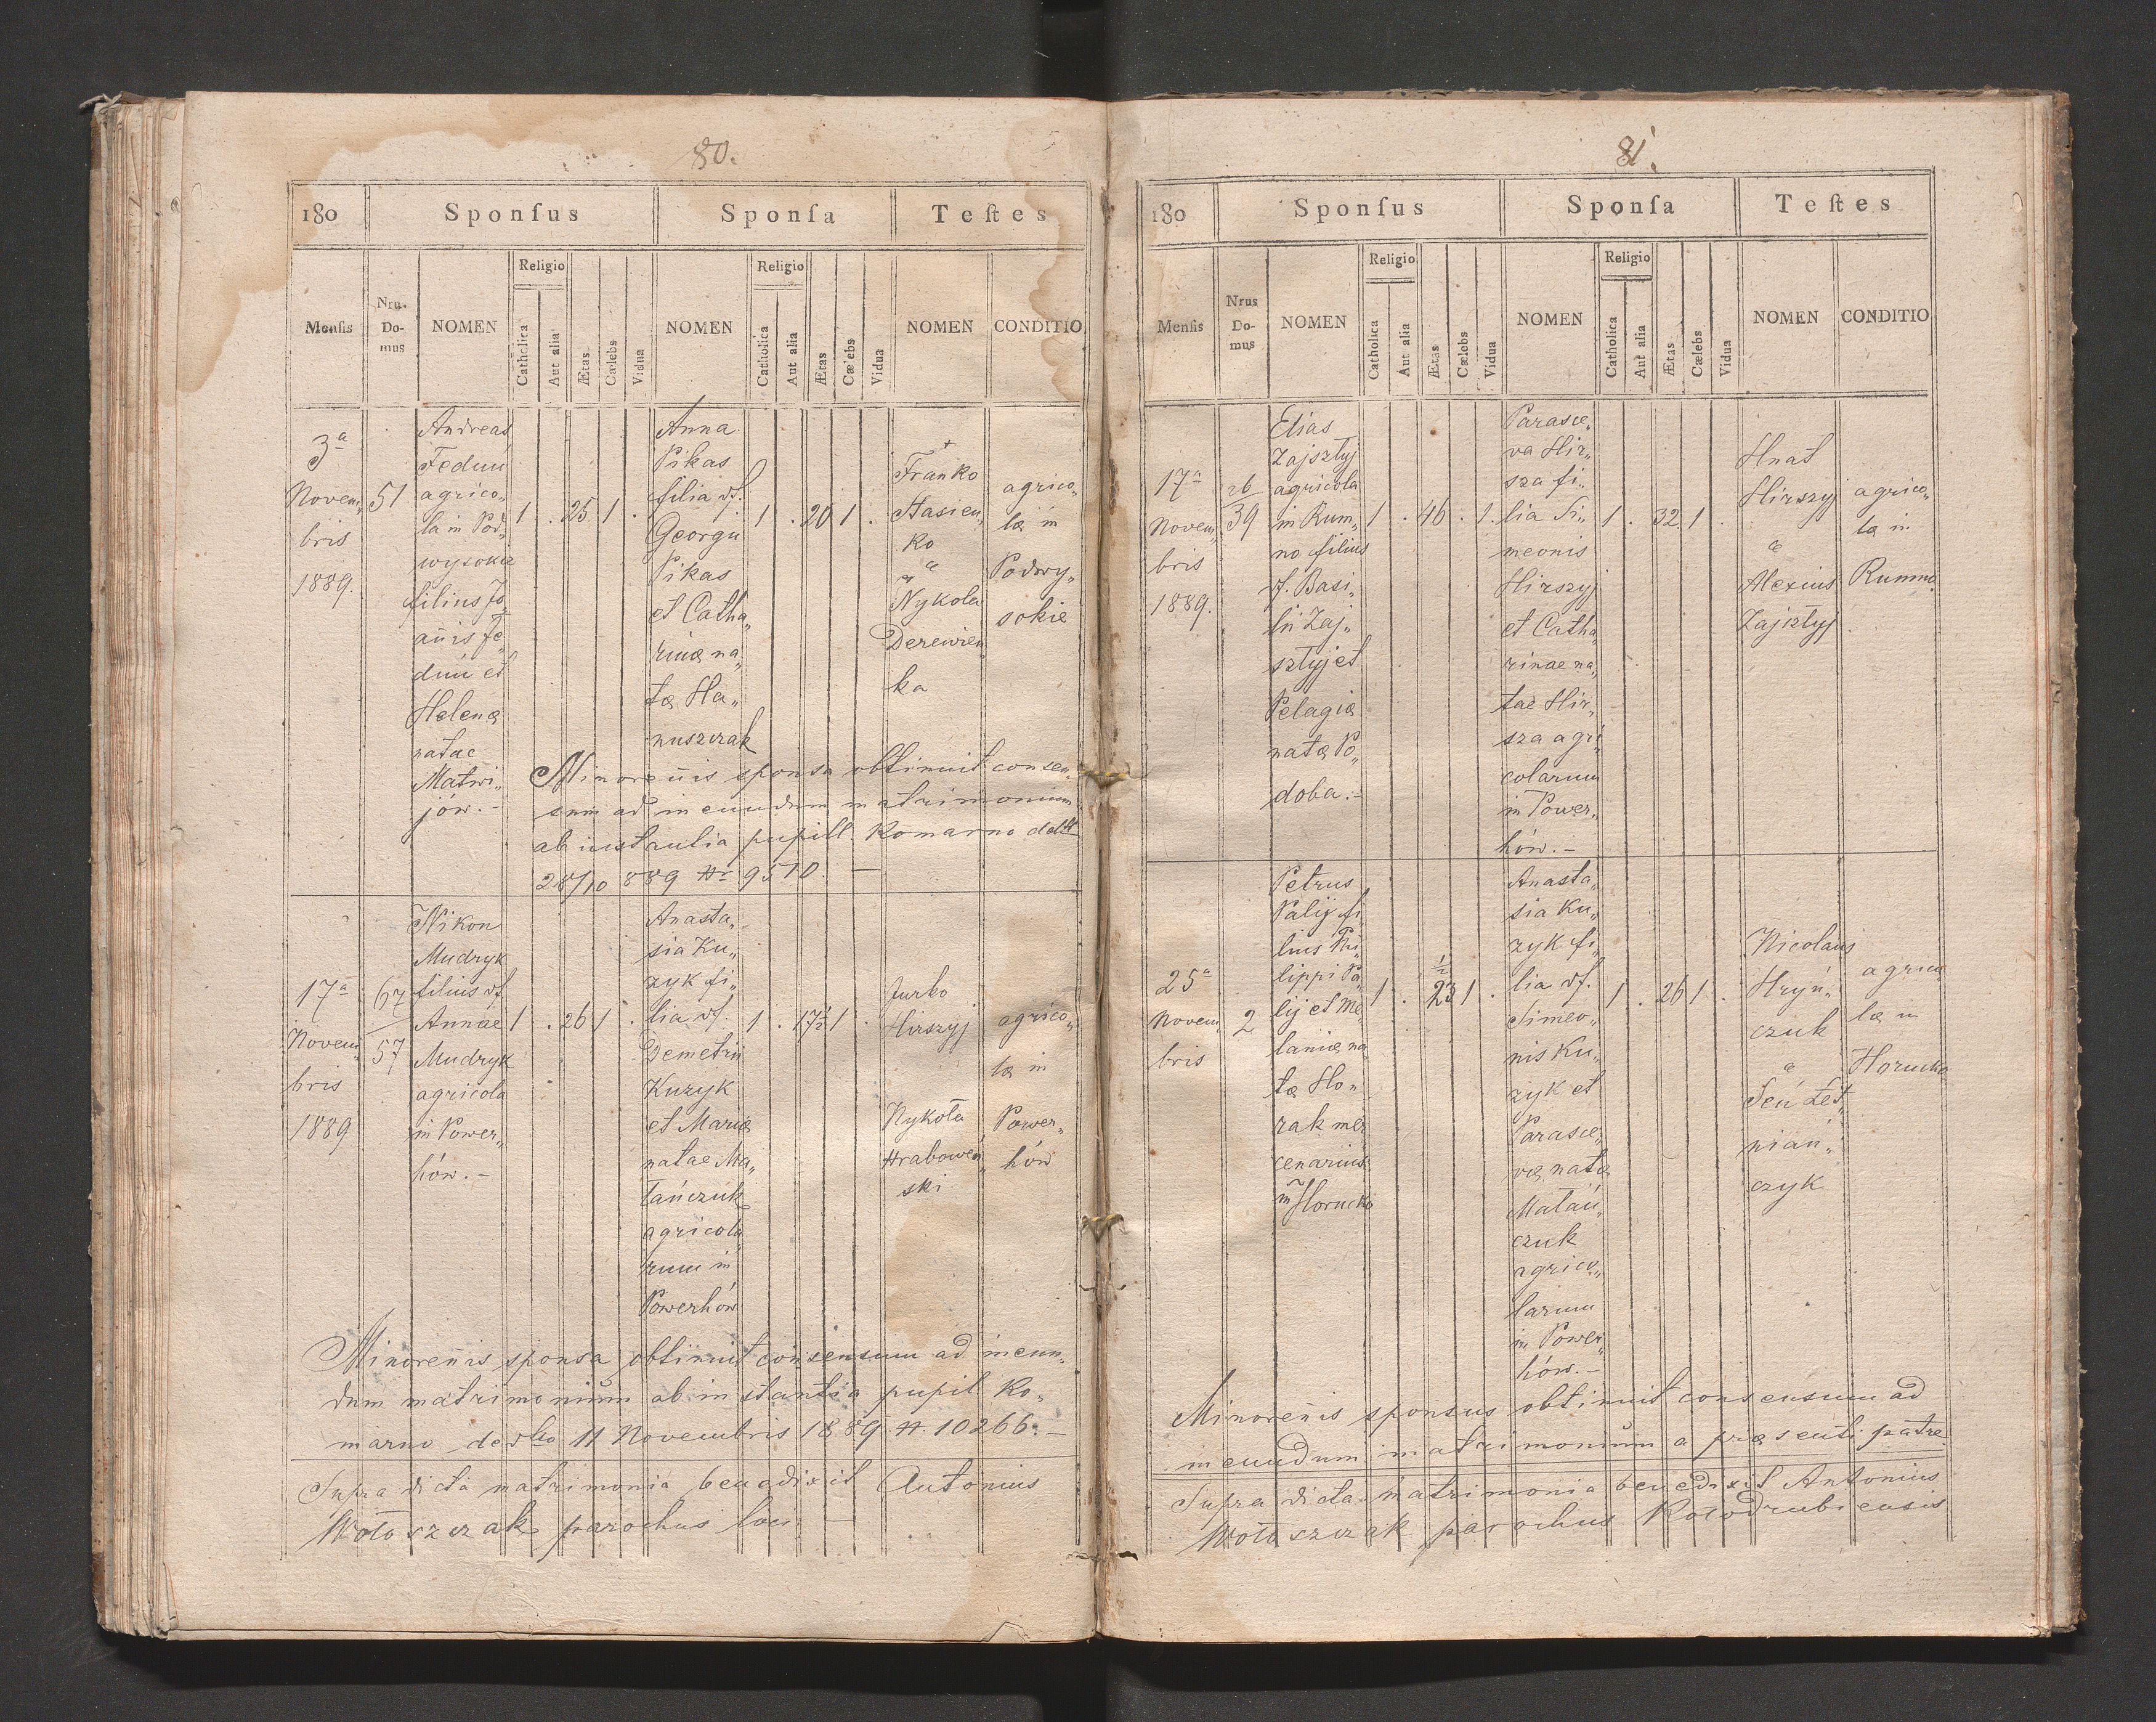 80.
180
Sponſus
Sponſa
Teſtes
Menſis
Nru.
Do-
mus
NOMEN
Religio
Catholica
Aut alia
Ætas
Cælebs
Vidua
NOMEN
Religio
Catholica
Aut alia
Ætas
Cælebs
Vidua
NOMEN
CONDITIO
3a
Novem„
bris
1889.
51
Andreas
Feduń
agrico„
la in Pod„
wysokie
filius Jo„
anis Fe„
duń et
Helenæ
natae
Matwi„
jów.–
1 . 25 1 .
Anna
Pikas
filia df.
Georgii
Pikas
et Catha„
rinæ na„
tæ Ha„
nuszczak
1 . 20 1 .
Franko
Stasien„
ko
a
Nykola
Derewien„
ka
agrico„
læ in
Podwy„
sokie
Minorenis sponsa obtinuit consen„
sum ad in eundum matrimonium
ab instantia pupill. Komarno ddtt
28/10 889 Nr 9510. —
17a
Novem„
bris
1889
67
57
Nikon
Mudryk
filius df
Annae
Mudryk
agricola
in Power„
hów.–
1 . 26 1 .
Anasta„
sia Ku„
zyk fi„
lia df.
Demetrii
Kuzyk
et Mariæ
natae Ma„
łańczuk
agricola„
rum in
Powerhów
1 . 17½ 1 .
Jurko
Hirszyj
Nykoła
Hrabowen„
ski
agrico„
læ in
Power„
hów
Minorenis sponsa obtinuit consensum ad ineun„
dum matrimonium ab in stantia pupil Ko„
marno de dto 11 Novembris 1889 N. 10266.–
Supra dicta matrimonia benedixit Antonius
Wołoszczak parochus loci —
81.
180
Sponſus
Sponſa
Teſtes
Menſis
Nrus
Do-
mus
NOMEN
Religio
Catholica
Aut alia
Ætas
Cælebs
Vidua
NOMEN
Religio
Catholica
Aut alia
Ætas
Cælebs
Vidua
NOMEN
CONDITIO
17a
Novem„
bris
1889.
26
39
Elias
Zajsztyj
agricola
in Rum„
no filius
df. Basi„
lii Zaj„
sztyj et
Pelagiæ
natæ Po„
doba.–
1 . 46 . 1.
Parasce„
va Hir„
sza fi„
lia Si„
meonis
Hirszyj
et Catha„
rinae na„
tae Hir„
sza agri„
colarum
in Power„
hów.–
1 . 32. 1 .
Hnat
Hirszyj
a
Alexius
Zajsztyj
agrico„
læ in
Rumno
25a
Novem„
bris
2
Petrus
Palij fi„
lius Phi„
lippi Pa„
lij et Me„
laniæ na„
tæ Ho„
rak mer„
cenarius
in Horucko
1 . 23½ 1 .
Anasta„
sia Ku„
zyk fi„
lia df.
Simeo„
nis Ku„
zyk et
Parasce„
væ natæ
Małań„
czuk
agrico„
larum
in Power„
hów.–
1 . 26 1 .
Nicolaus
Hryń„
czuk
a
Seń Let„
niań„
czyk
agrico„
læ in
Horucko
Minorenis sponsus obtinuit consensum ad
ineundum matrimonium a præsenti patre.
Supra dicta matrimonia benedixit Antonius
Wołoszczak parochus Kołodrubiensis